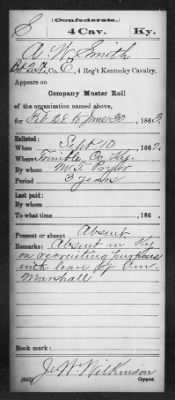 (Confederate.)
S 4 Cav. Ky.
A. W. Smith
Co. E, 4 Reg't Kentucky Cavalry.
Appears on
Company Muster Roll
of the organization named above,
for Feb 28 to June 30, 1863.
Enlisted:
When Sept 10, 1862.
Where Trimble Co Ky.
By whom
Period 3 years
Last paid:
By whom
To what time , 186 .
Present or absent Absent
Remarks: Absent in Ky
on recruiting purposes
with leave by Gen
Marshall
Book mark:
J. W. Wilkinson
(642) Copyist.